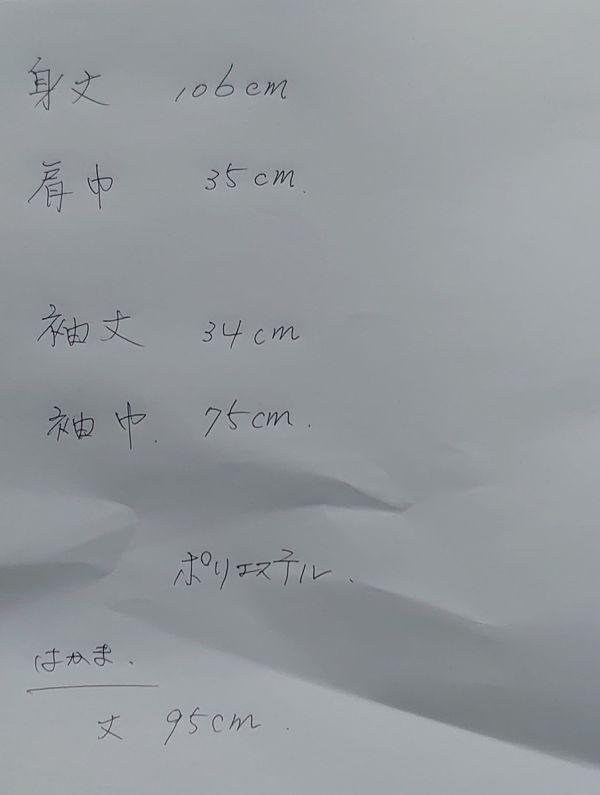 身丈 106cm
肩巾 35cm.
袖丈 34cm
袖巾. 75cm.
ポリエステル.
はかま.
丈 95cm.